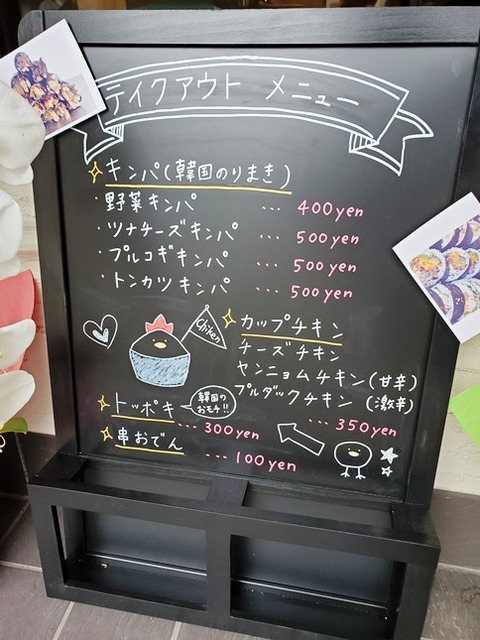 テイクアウト メニュー
キンパ(韓国のりまき)
・野菜キンパ ... 400yen
・ツナチーズキンパ ... 500yen
・プルコギキンパ ... 500yen
・トンカツキンパ ... 500yen
Chiken
カップチキン
チーズチキン
ヤンニョムチキン(甘辛)
プルダックチキン(激辛)
... 350yen
トッポキ
韓国の
おモチ!!
... 300yen
串おでん
... 100yen